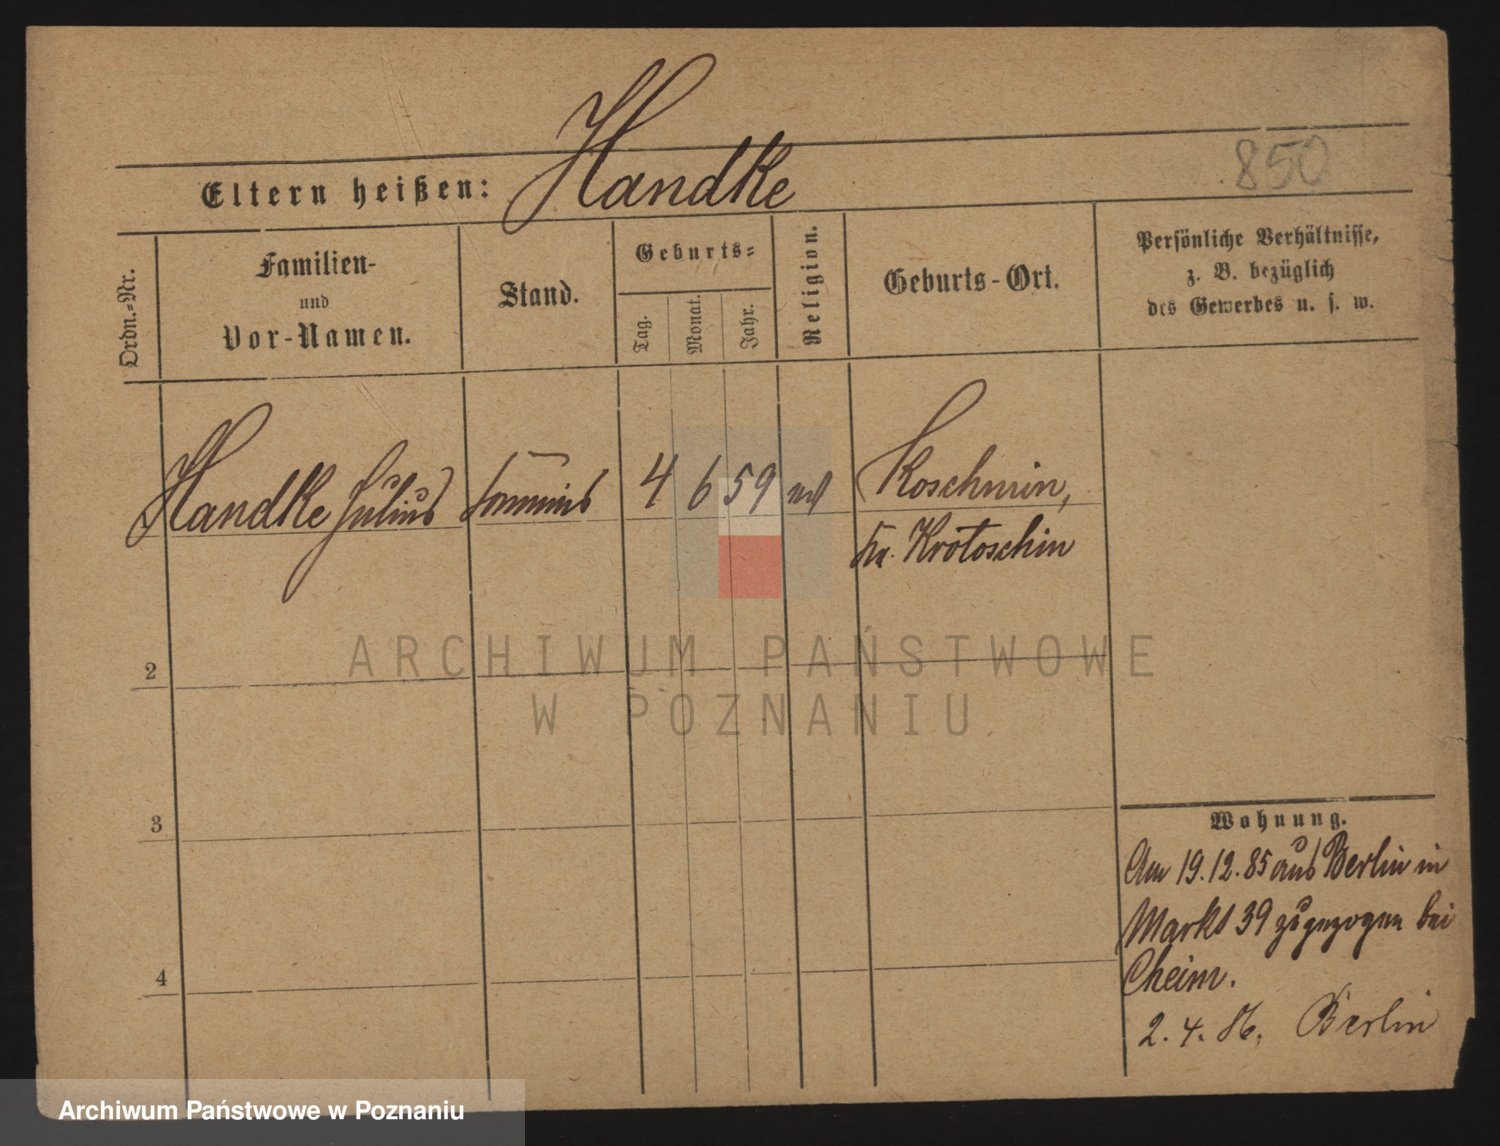 850
Eltern heißen: Handke
Ordn.-Nr.
Familien-
und
Vor-Namen.
Stand.
Geburts-
Tag.
Monat.
Jahr.
Religion.
Geburts-Ort.
Persönliche Verhältnisse,
z. B. bezüglich
des Gewerbes u. s. w.
Handke Julius Commis 4 6 59 Koschmin,
Kr. Krotoschin
2
3
4
Wohnung.
Am 19.12.85 aus Berlin in
Markt 39 zugezogen bei
Cheim.
2.4.86. Berlin
ARCHIWUM PAŃSTWOWE
W POZNANIU
Archiwum Państwowe w Poznaniu